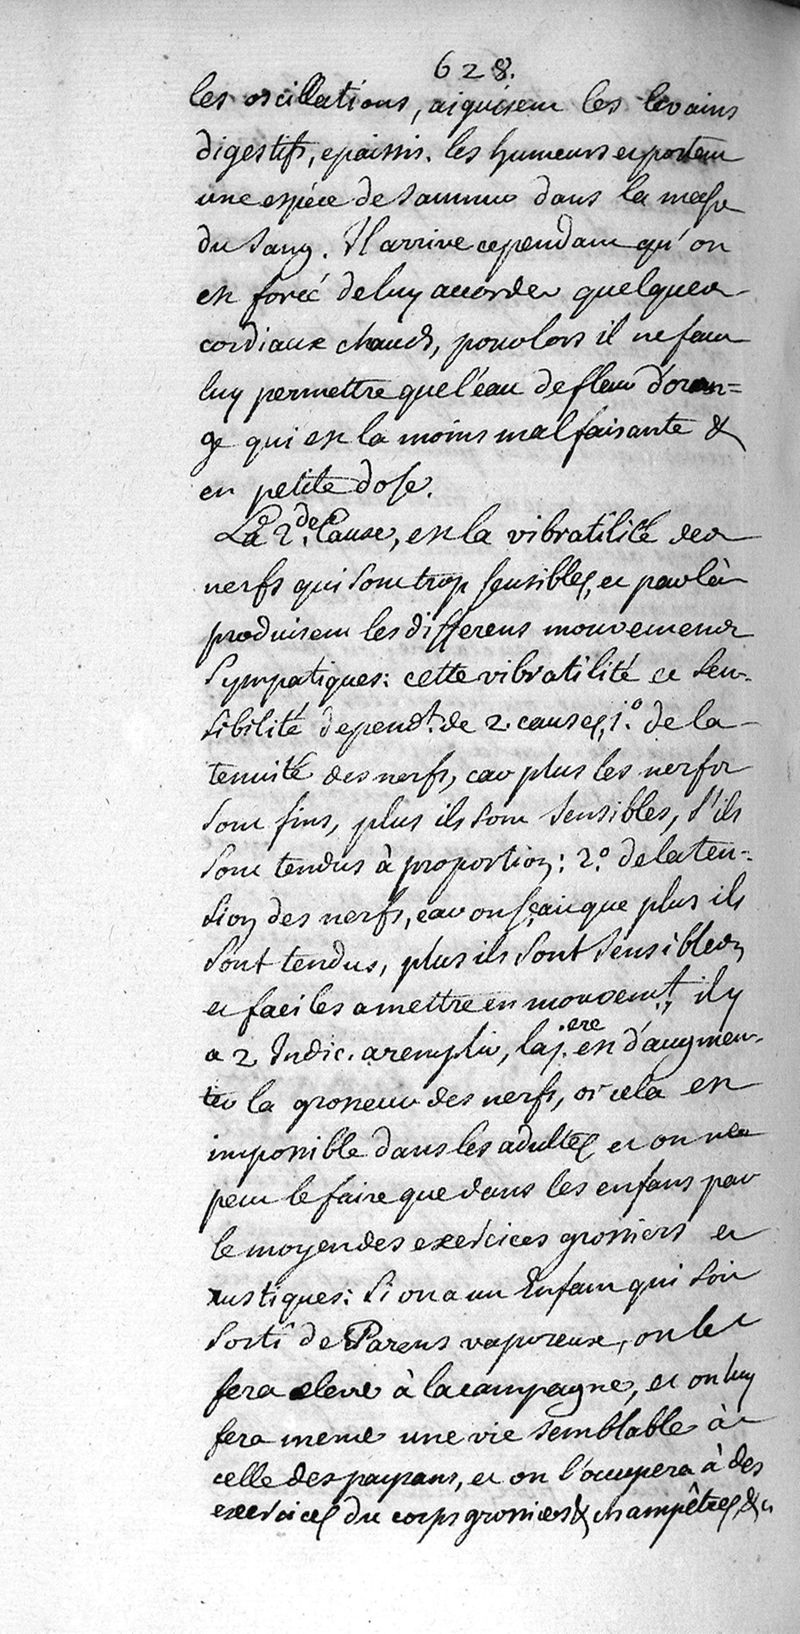 628.
les oscillations, aiguisent les levains
digestifs, epaissis. les humeurs et portent
une espéce de saumure dans la masse
du sang. Il arrive cependant qu'on
est forcé de luy accorder quelques
cordiaux chauds, pour lors il ne faut
luy permettre que l'eau de fleur d'oran=
ge qui est la moins malfaisante &
en petite dose.
La 2.de Cause, est la vibratilité des
nerfs qui sont trop sensibles, et par là
produisent les differens mouvements
sympatiques: cette vibratilité et sen-
sibilité depend.t de 2 causes, 1.° de la
tenuité des nerfs, car plus les nerfs
sont fins, plus ils sont sensibles, s'ils
sont tendus à proportion: 2.° de la ten-
sion des nerfs, car on sçait que plus ils
sont tendus, plus ils sont sensibles
et faciles a mettre en mouvem.t, il y
a 2 Indic. a remplir, la 1.ere est d'augmen-
ter la grosseur des nerfs, or cela est
impossible dans les adultes et on ne
peut le faire que dans les enfans par
le moyen des exercices grossiers et
rustiques: si on a un Enfant qui soit
sorti de Parens vaporeux, on le
fera elever à la campagne, et on luy
fera mener une vie semblable à
celle des paysans, et on l'occupera à des
exercices du corps grossiers & champêtres, &c